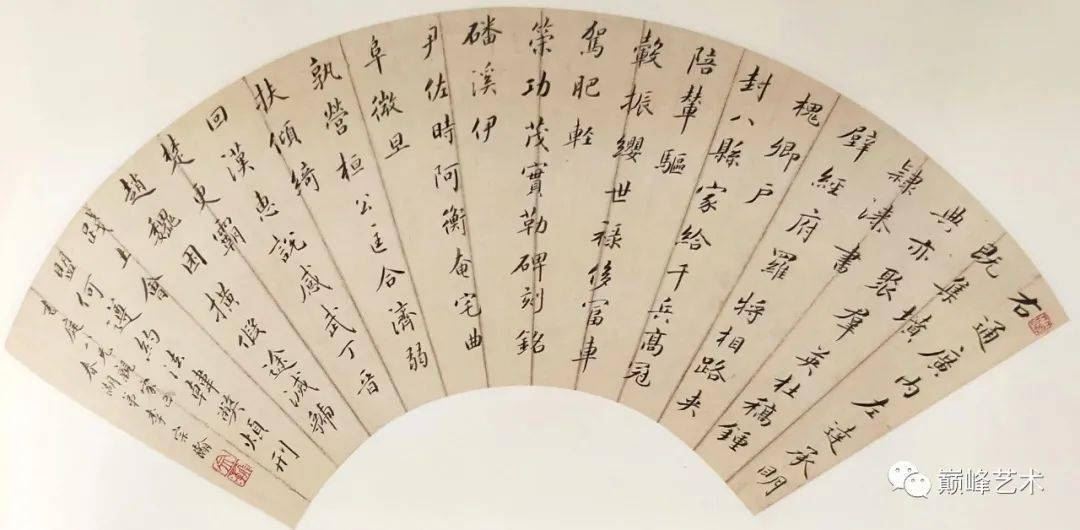 右通廣內左達承明
既集墳
典亦聚羣英杜稿鍾
隸漆書
壁經府羅將相路夾
槐卿戶
封八縣家給千兵高冠
陪輦驅
轂振纓世祿侈富車
駕肥輕
策功茂實勒碑刻銘
磻溪伊
尹佐時阿衡奄宅曲
阜微旦
孰營桓公匡合濟弱
扶傾綺
回漢惠說感武丁晉
楚更霸
趙魏困橫假途滅虢
踐土會
盟何遵約法韓弊煩刑
書庭八兄親家正
春湖弟李宗瀚
巅峰艺术